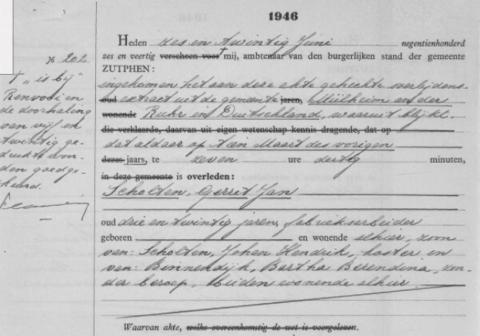 1946
Heden zes en twintig Juni negentienhonderd
zes en veertig verscheen voor mij, ambtenaar van den burgerlijken stand der gemeente
ZUTPHEN:
ingekomen het aan deze akte gehechte overlijdens-
oud extract uit de gemeente jaren, Mülheim an der
wonende Ruhr in Duitschland, waaruit blijkt
die verklaarde, daarvan uit eigen wetenschap kennis dragende, dat op
dat aldaar op tien Maart des vorigen
dezes jaars, te zeven ure dertig minuten,
in deze gemeente is overleden:
Scholten, Gerrit Jan
oud drie en twintig jaren, fabrieksarbeider
geboren en wonende alhier, zoon
van: Scholten, Johan Hendrik, koster en
van: Binnendijk, Bertha Berendina, zon-
der beroep, beiden wonende alhier.
Waarvan akte, welke overeenkomstig de wet is voorgelezen.
№ 202
"t" is bij
Renvooi en
de doorhaling
van vijf en
twintig ge-
drukte woor-
den goedge-
keurd.